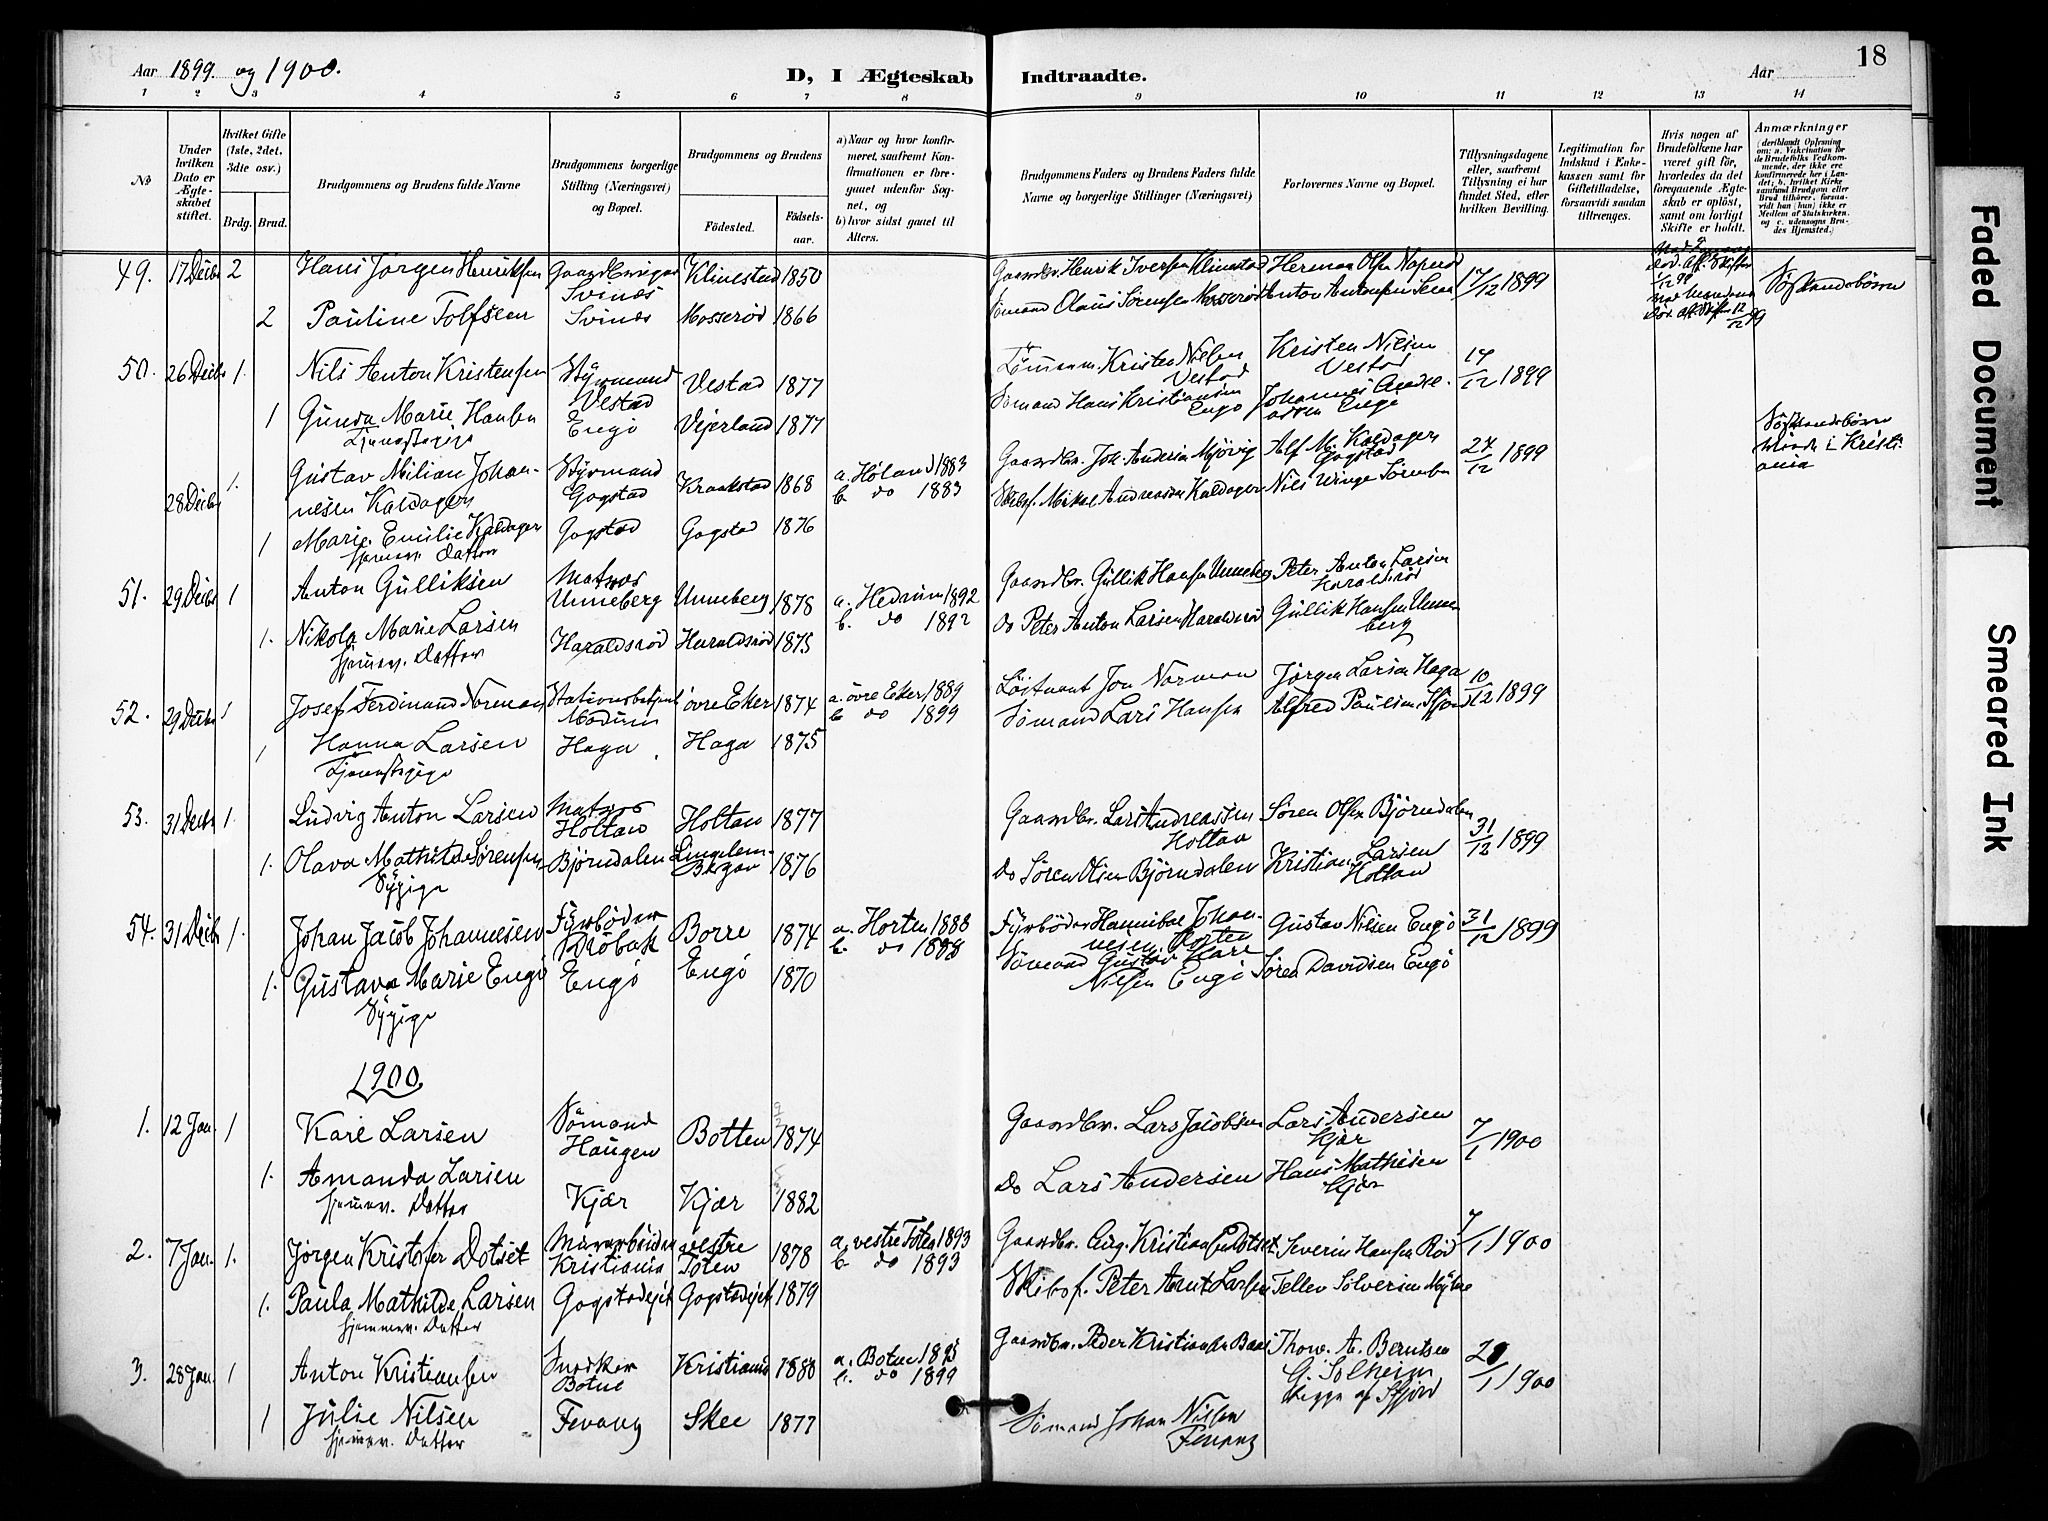 Aar 1899. og 1900.
D, I Ægteskab Indtraadte.
Aar
18
1 2 3 4 5 6 7 8 9 10 11 12 13 14
No
Under hvilken Dato er Ægteskabet stiftet.
Hvilket Gifte (1ste, 2det, 3die osv.)
Brdg. Brud.
Brudgommens og Brudens fulde Navne
Brudgommens borgerlige Stilling (Næringsvei) og Bopæl.
Brudgommens og Brudens
Fødested. Fødselsaar.
a) Naar og hvor konfirmeret, saafremt Konfirmationen er foregaaet udenfor Sognet, og
b) hvor sidst gaaet til Alters.
Brudgommens Faders og Brudens Faders fulde Navne og borgerlige Stillinger (Næringsvei)
Forlovernes Navne og Bopæl.
Tillysningsdagene eller, saafremt Tillysning ei har fundet Sted, efter hvilken Bevilling.
Legitimation for Indskud i Enkekassen samt for Giftetilladelse, forsaavidt saadan tiltrænges.
Hvis nogen af Brudefolkene har været gift før, hvorledes da det foregaaende Ægteskab er opløst, samt om lovligt Skifte er holdt.
Anmærkninger
49. 17 Decbr 2 Hans Jørgen Henriksen Svinæs Klinestad 1850 Gaardbr. Henrik Iversen Klinestad Herman Olsen 17/12 1899 Søskendebørn
2 Pauline Tolfsen Svinæs Mosserød 1866 Sømand Olaus Sørensen Mosserød Anton Antonsen
50. 26 Decbr 1. Nils Anton Kristensen Styrmand Vestad Vestad 1877 Kristen Nielsen Vestad Kristen Nilsen Vestad 17/12 1899
1 Gunda Marie Hansen Tjenestepige Engø Vejerland 1877 Sømand Hans Kristiansen Engø Johannes Andreassen Engø
28 Decbr 1. Gustav Milian Johannesen Kaldager Styrmand Gogstad Kraakstad 1868 a. Høland 1883 b. do 1883 Gaardbr. Joh. Andersen Mjøvig Alf M. Kaldager Gogstad 24/12 1899 Søskendebørn viede i Kristiania
1 Marie Emilie Kaldager hjemmev. Datter Gogstad Gogstad 1876 Skibsf. Mikal Andreassen Kaldager Nils Winge Sørensen
51. 29 Decbr 1 Anton Gulliksen Matros Unneberg Unneberg 1878 a. Hedrum 1892 b. do 1892 Gaardbr. Gullik Hansen Unneberg Peter Anton Larsen Haraldsrød
1. Nikola Marie Larsen hjemmev. Datter Haraldsrød Haraldsrød 1875 Do Peter Anton Larsen Haraldsrød Gullik Hansen Unneberg
52. 29 Decbr 1 Josef Ferdinand Norman Stationsbetjent Modum øvre Eker 1874 a. øvre Eker 1889 b. do 1899 Løitnant Jon Norman Jørgen Larsen Haga 10/12 1899
1 Hanna Larsen Tjenestepige Haga Haga 1875 Sømand Lars Hansen Alfred Paulsen
53. 31 Decbr 1. Ludvig Anton Larsen Matros Holtan Holtan 1877 Gaardbr. Lars Andreassen Holtan Søren Olsen Bjørndalen 31/12 1899
1. Olava Mathilde Sørensen Sypige Bjørndalen 1876 Do Søren Olsen Bjørndalen Kristian Larsen Holtan
54. 31 Decbr 1. Johan Jacob Johannesen Fyrbøder Drøbak Borre 1874 a. Horten 1888 b. do 1888 Fyrbøder Hannibal Johannesen Horten Gustav Nilsen Engø 31/12 1899
1. Gustava Marie Engø Sypige Engø Engø 1870 Sømand Gustav Kare Nilsen Engø Søren Davidsen Engø
1900
1. 12 Jan. 1 Kare Larsen Sømand Haugen Botten 1874 Gaardbr. Lars Jacobsen Lars Andersen Kjær 7/1 1900
1. Amanda Larsen hjemmev. Datter Kjær Kjær 1882 Do Lars Andersen Hans Mathisen Kjær
2. 7 Jan. 1. Jørgen Kristofer Dotset Murarbeider Kristiania vestre Toten 1878 a. vestre Toten 1893 b. do 1893 Gaardbr. Aug. Kristiansen Dotset Severin Hansen Rød 7/1 1900
1. Paula Mathilde Larsen hjemmev. Datter Gogstadejet Gogstadejet 1879 Skibsf. Peter Arnt Larsen Tellev Sølversen
3. 28 Jan. 1 Anton Kristiansen Snedker Botne Kristiania 1880 a. Botne 1895 b. do 1899 Gaardbr. Peder Kristiansen Thorv. A. Berntsen G. Solheim 1900
1 Julie Nilsen hjemmev. Datter Fevang Skee 1877 Sømand Johan Nilsen Fevang
Faded Document
Smeared Ink